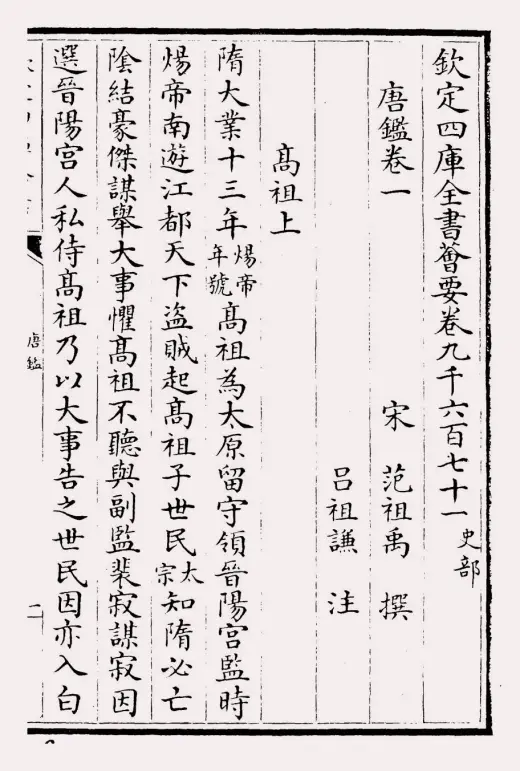 欽定四庫全書薈要卷九千六百七十一 史部
唐鑑卷一
宋 范祖禹 撰
呂祖謙 注
髙祖上
隋大業十三年煬帝年號髙祖為太原留守領晉陽宮監時
煬帝南遊江都天下盜賊起髙祖子世民太宗知隋必亡
陰結豪傑謀舉大事懼髙祖不聽與副監裴寂謀寂因
選晉陽宮人私侍髙祖乃以大事告之世民因亦入白
唐鑑
二